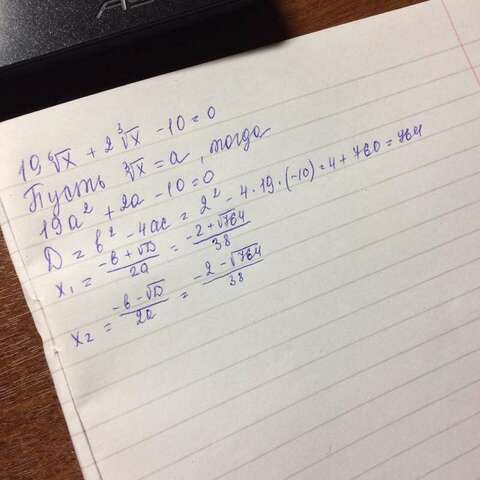 19 ⁶√x + 2 ³√x - 10 = 0
Пусть ³√x = a, тогда
19a² + 2a - 10 = 0
D = b² - 4ac = 2² - 4 · 19 · (-10) = 4 + 760 = 764
x₁ = (-b + √D)/2a = (-2 + √764)/38
x₂ = (-b - √D)/2a = (-2 - √764)/38